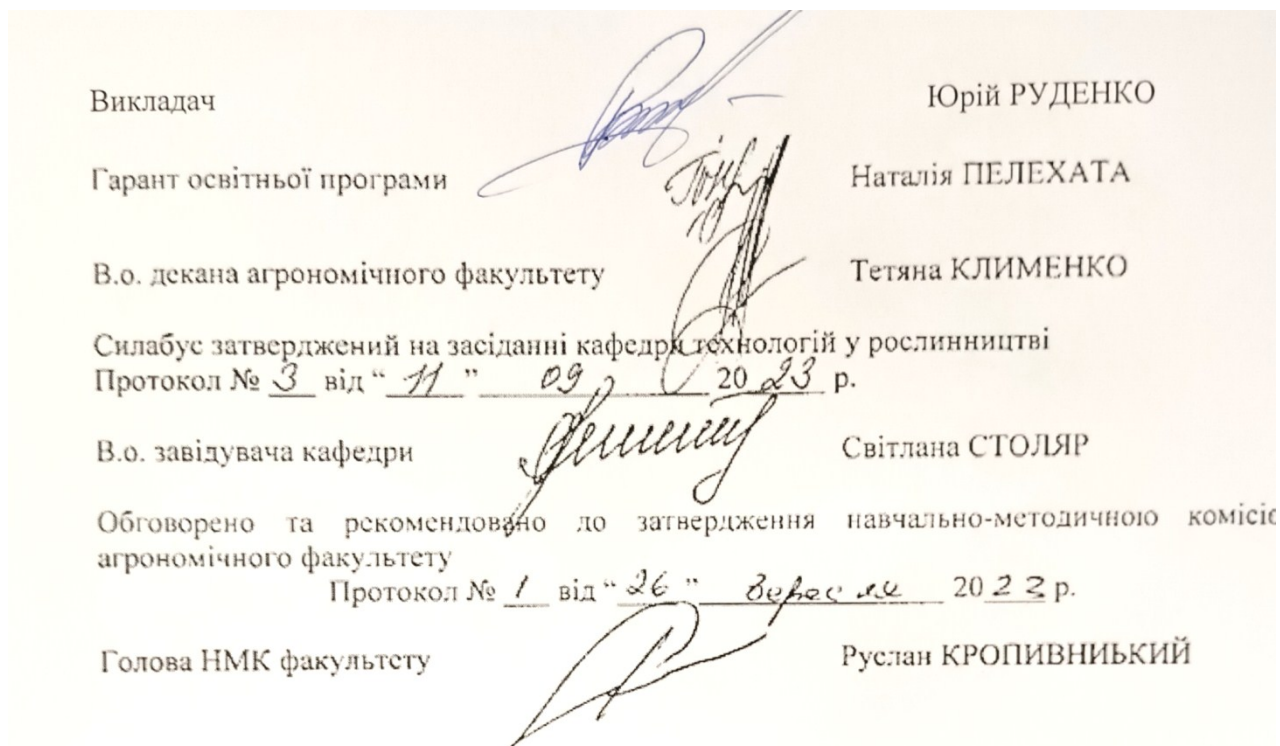 Викладач Юрій РУДЕНКО
Гарант освітньої програми Наталія ПЕЛЕХАТА
В.о. декана агрономічного факультету Тетяна КЛИМЕНКО
Силабус затверджений на засіданні кафедри технологій у рослинництві
Протокол № 3 від “ 11 ” 09 20 23 р.
В.о. завідувача кафедри Світлана СТОЛЯР
Обговорено та рекомендовано до затвердження навчально-методичною комісіє
агрономічного факультету
Протокол № 1 від “ 26 ” вересня 20 23 р.
Голова НМК факультету Руслан КРОПИВНИЬКИЙ